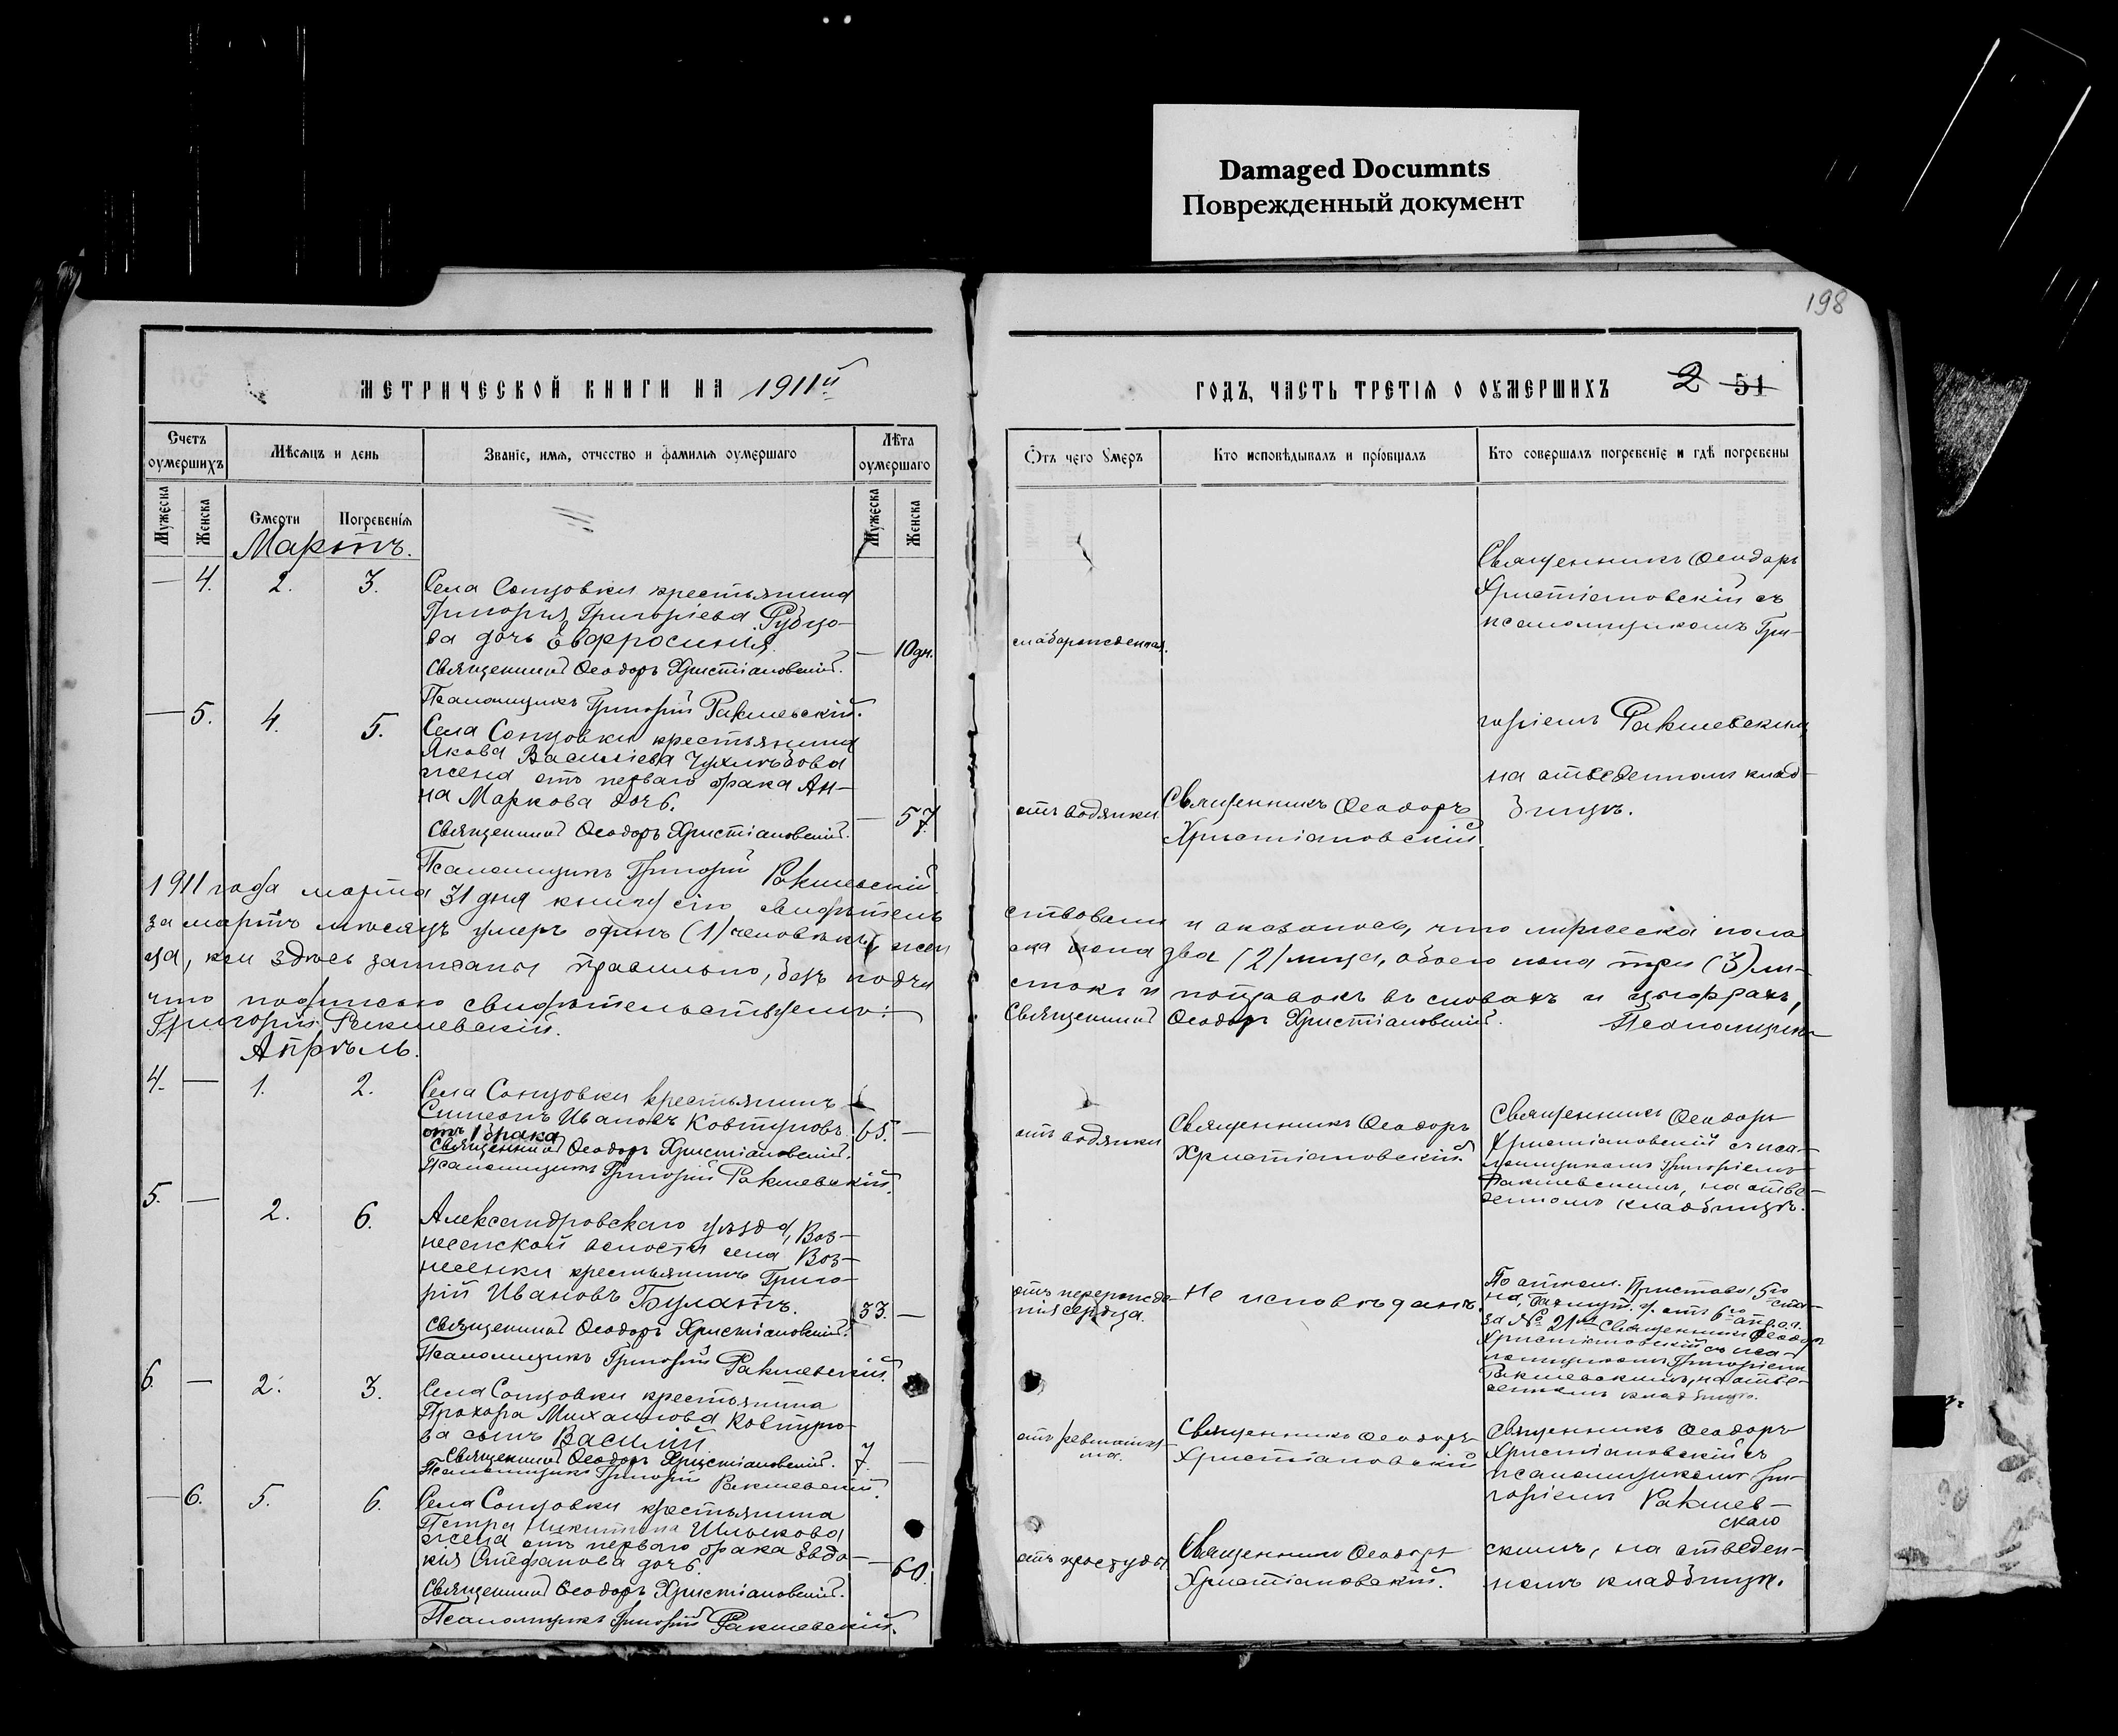 Damaged Documnts
Поврежденный документ
198
МЕТРИЧЕСКОЙ КНИГИ НА 1911й
ГОДЪ, ЧАСТЬ ТРЕТІѦ О ОУМЕРШИХЪ
2 51
Счетъ оумершихъ
Мѣсѧцъ и день
Званіе, имѧ, отчество и фамилья оумершаго
Лѣта оумершаго
Ѿтъ чего Умеръ
Кто исповѣдывалъ и пріобщалъ
Кто совершалъ погребеніе и гдѣ погребены
Мужеска
Женска
Смерти
Погребеніѧ
Мужеска
Женска
Мартъ.
— 4. 2. 3.
Села Сонцовки крестьянина
Григорія Григоріева Рубцо-
ва дочь Евфросинія.
— 10 дн.
Священникъ Ѳеодоръ Христіановскій.
Псаломщикъ Григорій Ракшевскій.
слаборожденная.
Священникъ Ѳеодоръ
Христіановскій съ
псаломщикомъ Гри-
горіемъ Ракшевскимъ
на отведенномъ клад-
бищѣ.
— 5. 4. 5.
Села Сонцовки крестьянина
Якова Василіева
жена отъ перваго брака Ан-
на Маркова дочь.
— 57.
Священникъ Ѳеодоръ Христіановскій.
Псаломщикъ Григорій Ракшевскій.
отъ водянки
Священникъ Ѳеодоръ
Христіановскій
1911 года марта 31 дня книгу сію свидѣтель
ствовали и оказалось, что мужеска пола
за мартъ мѣсяцъ умеръ одинъ (1) человѣкъ, жен
ска пола два (2) лица, обоего пола три (3) ли-
ца, кои здѣсь записаны правильно, безъ подчи
стокъ и поправокъ въ словахъ и цыфрахъ,
что подписью свидѣтельствуемъ:
Священникъ Ѳеодоръ Христіановскій. Псаломщикъ
Григорій Ракшевскій.
Апрѣль.
4. — 1. 2.
Села Сонцовки крестьянинъ
Симеонъ Ивановъ Ковтуновъ
отъ 1 брака
65. —
Священникъ Ѳеодоръ Христіановскій.
Псаломщикъ Григорій Ракшевскій.
отъ водянки
Священникъ Ѳеодоръ
Христіановскій.
Священникъ Ѳеодоръ
Христіановскій съ пса-
ломщикомъ Григоріемъ
Ракшевскимъ, на отве-
денномъ кладбищѣ.
5. — 2. 6.
Александровскаго уѣзда, Воз-
несенской волости села Воз-
несенки крестьянинъ Григо-
рій Ивановъ Булатъ.
33. —
Священникъ Ѳеодоръ Христіановскій.
Псаломщикъ Григорій Ракшевскій.
отъ перерожде-
нія сердца.
Не исповѣданъ.
По отнош. Пристава 5го ста-
на, Бахмут. у. отъ 6го апр. а.
за № 21 Священникъ Ѳеодоръ
Христіановскій съ пса-
ломщикомъ Григоріемъ
Ракшевскимъ, на отве-
денномъ кладбищѣ.
6. — 2. 3.
Села Сонцовки крестьянина
Прохора Михаилова Ковтуно-
ва сынъ Василій
7. —
Священникъ Ѳеодоръ Христіановскій.
Псаломщикъ Григорій Ракшевскій.
отъ ревматиз-
ма.
Священникъ Ѳеодоръ
Христіановскій
Священникъ Ѳеодоръ
Христіановскій съ
псаломщикомъ Гри-
горіемъ Ракшев-
скаго
скимъ, на отведен-
номъ кладбищѣ.
— 6. 5. 6.
Села Сонцовки крестьянина
Петра Никитина
жена отъ перваго брака Евдо-
кія Стефанова дочь.
— 60.
Священникъ Ѳеодоръ Христіановскій.
Псаломщикъ Григорій Ракшевскій.
отъ простуды
Священникъ Ѳеодоръ
Христіановскій.